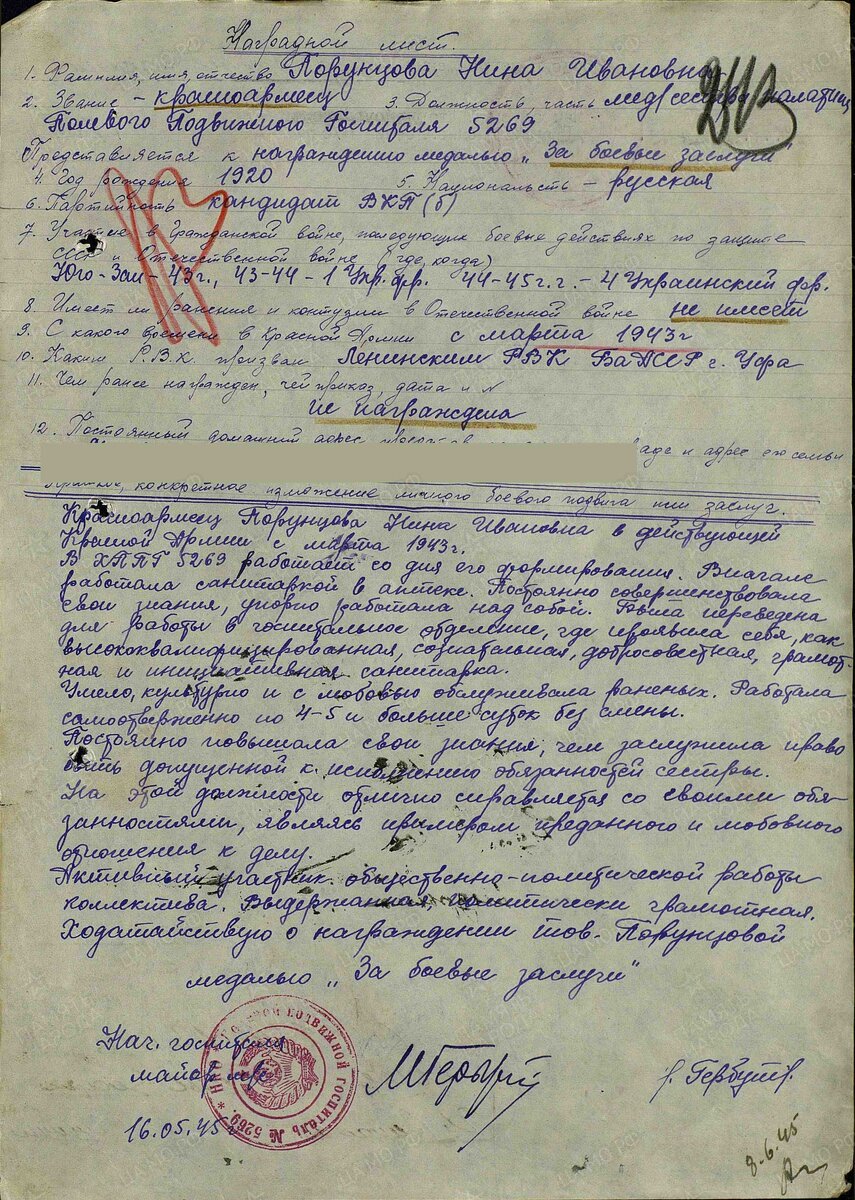 Наградной лист.
1. Фамилия, имя, отчество Порунцова Нина Ивановна
2. Звание - красноармеец 3. Должность, часть мед/сестра палатн.
Полевого Подвижного Госпиталя 5269
Представляется к награждению медалью „За боевые заслуги"
4. Год рождения 1920 5. Национальность - русская
6. Партийность кандидат ВКП(б)
7. Участие в Гражданской войне, последующих боевых действиях по защите
СССР и Отечественной войне (где, когда)
Юго-Зап - 43 г., 43-44 - 1 Укр. фр. 44-45 г.г. - 4 Украинский фр.
8. Имеет ли ранения и контузии в Отечественной войне не имеет
9. С какого времени в Красной Армии с марта 1943 г
10. Каким Р.В.К. призван Ленинским РВК БАССР г. Уфа
11. Чем ранее награжден, чей приказ, дата и №
не награждена
12. Постоянный домашний адрес
и адрес его семьи
конкретное изложение личного боевого подвига или заслуг.
Красноармеец Порунцова Нина Ивановна в действующей
Красной Армии с марта 1943 г.
В ХППГ 5269 работает со дня его формирования. Вначале
работала санитаркой в аптеке. Постоянно совершенствовала
свои знания, упорно работала над собой. Была переведена
для работы в госпитальное отделение, где проявила себя, как
высококвалифицированная, сознательная, добросовестная, грамот-
ная и инициативная санитарка.
Умело, культурно и с любовью обслуживала раненых. Работала
самоотверженно по 4-5 и больше суток без смены.
Постоянно повышала свои знания, чем заслужила право
быть допущенной к исполнению обязанностей сестры.
На этой должности отлично справляется со своими обя-
занностями, являясь примером преданного и любовного
отношения к делу.
Активный участник общественно-политической работы
коллектива. Выдержанная, политически грамотная.
Ходатайствую о награждении тов. Порунцовой
медалью „За боевые заслуги"
Нач. госпиталя
майор м/с
16.05.45 г
подвижной госпиталь № 5269
8.6.45